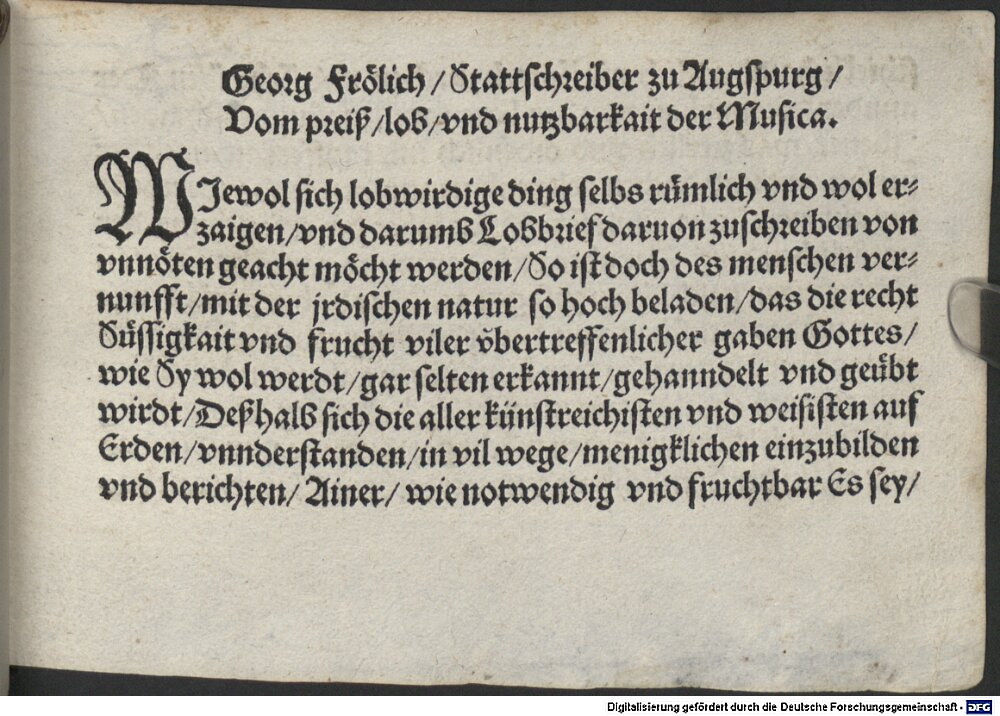 Georg Frölich / Stattschreiber zu Augspurg /
Vom preiß / lob / vnd nutzbarkait der Musica.
WJewol sich lobwirdige ding selbs rümlich vnd wol er⸗
zaigen / vnd darumb Lobbrief daruon zuschreiben von
vnnöten geacht möcht werden / So ist doch des menschen ver⸗
nunfft / mit der jrdischen natur so hoch beladen / das die recht
Süssigkait vnd frucht viler vͤbertreffenlicher gaben Gottes /
wie Sy wol werdt / gar selten erkannt / gehanndelt vnd geübt
wirdt / Deßhalb sich die aller künstreichisten vnd weisisten auf
Erden / vnnderstanden / in vil wege / menigklichen einzubilden
vnd berichten / Ainer / wie notwendig vnd fruchtbar Es sey /
Digitalisierung gefördert durch die Deutsche Forschungsgemeinschaft - DFG